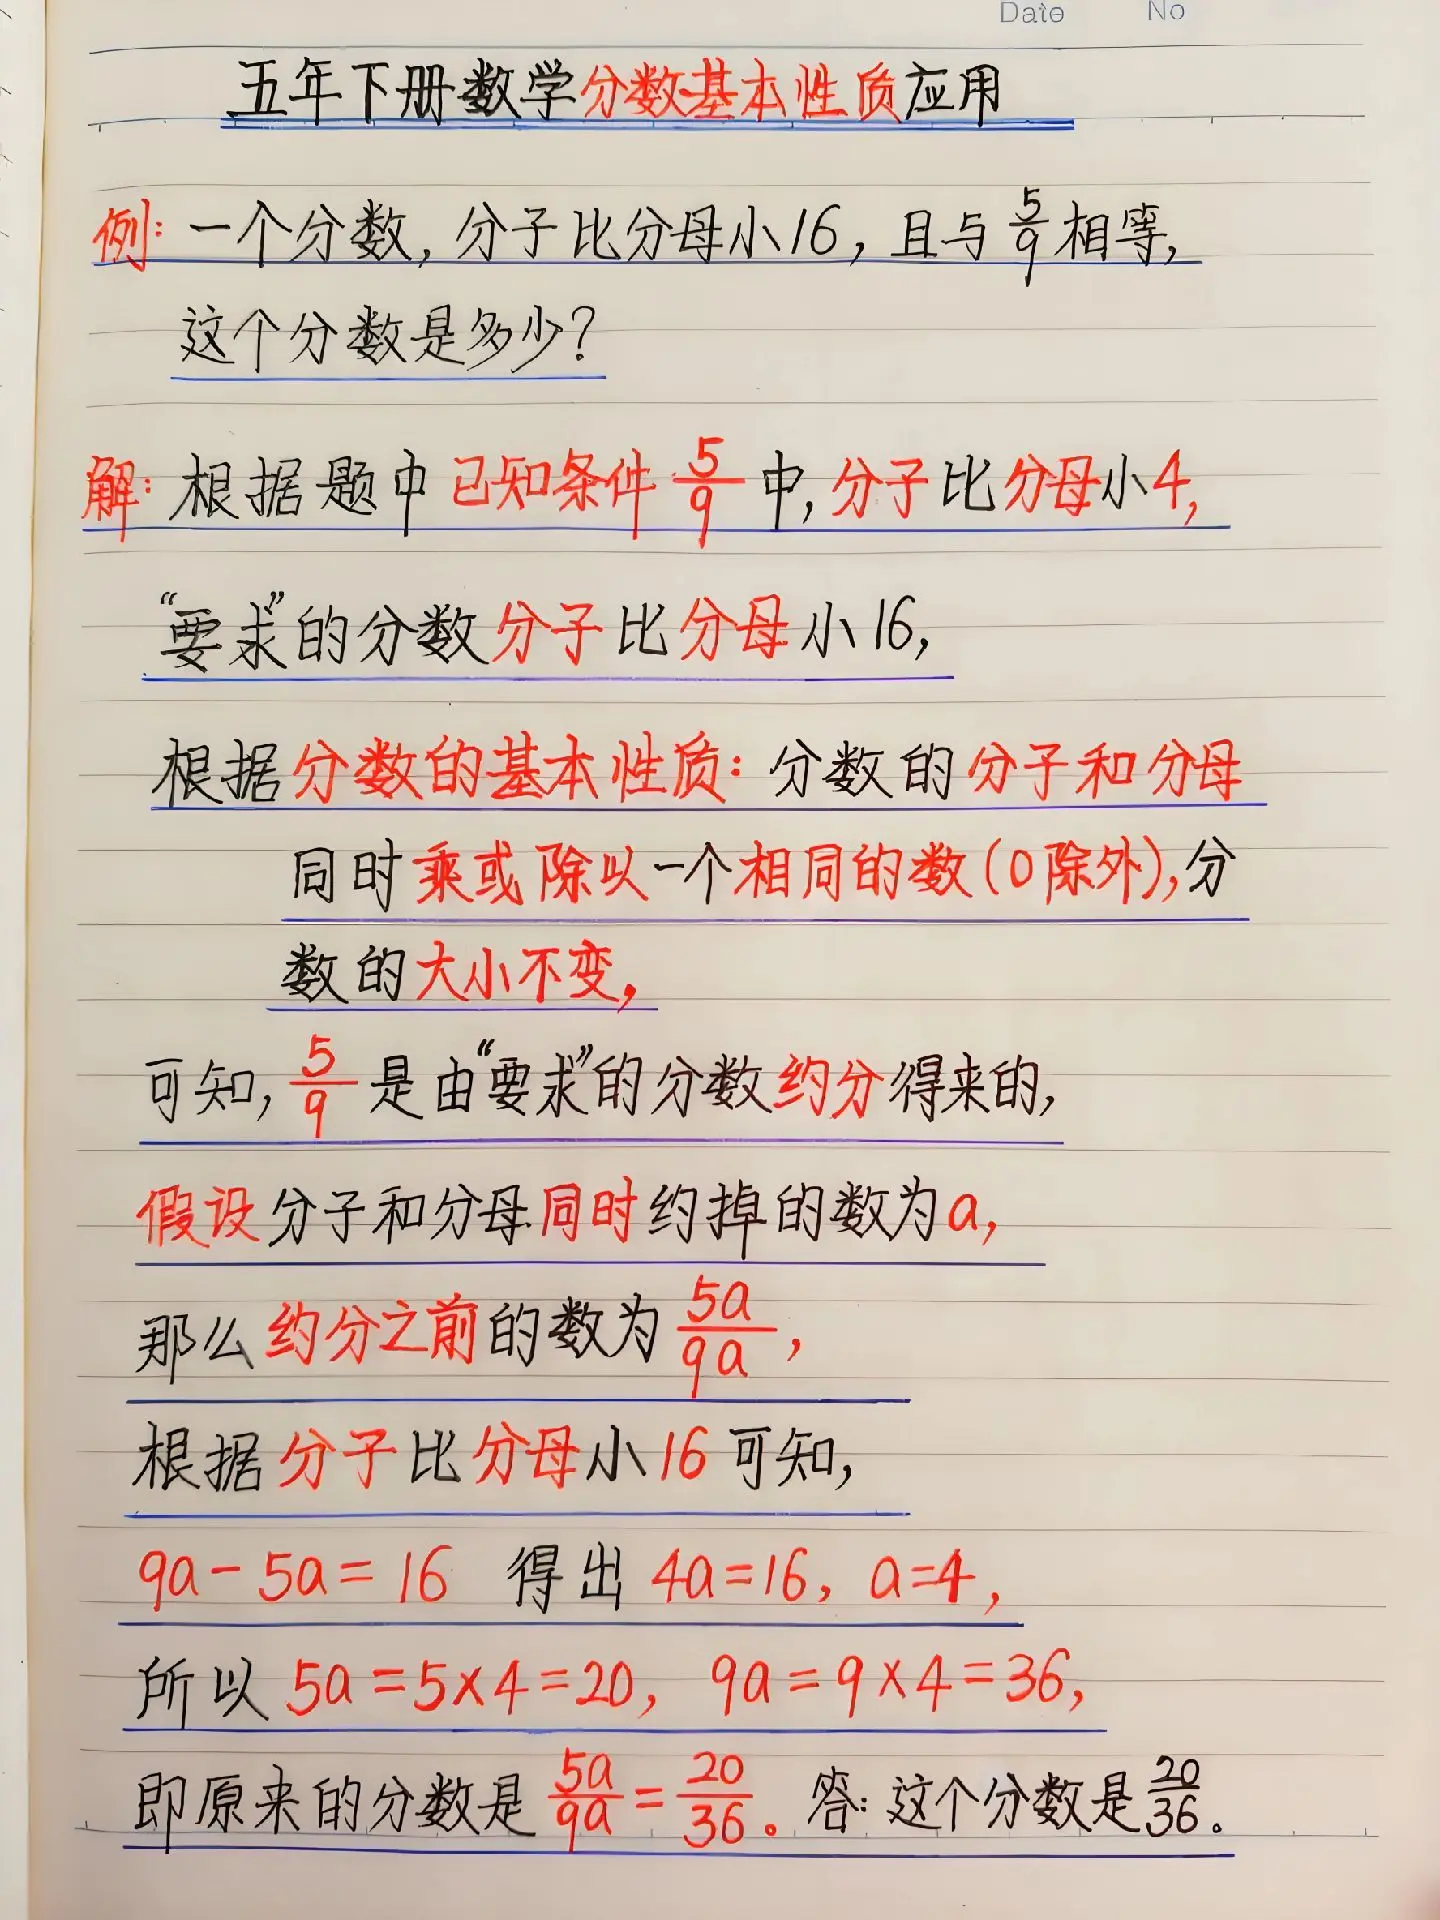 Date No
五年下册数学分数基本性质应用
例：一个分数，分子比分母小16，且与5/9相等，
这个分数是多少？
解：根据题中已知条件5/9中，分子比分母小4，
“要求”的分数分子比分母小16，
根据分数的基本性质：分数的分子和分母
同时乘或除以一个相同的数(0除外)，分
数的大小不变，
可知，5/9是由“要求”的分数约分得来的，
假设分子和分母同时约掉的数为a，
那么约分之前的数为5a/9a，
根据分子比分母小16可知，
9a-5a=16 得出 4a=16，a=4，
所以 5a=5×4=20，9a=9×4=36，
即原来的分数是5a/9a=20/36。答：这个分数是20/36。